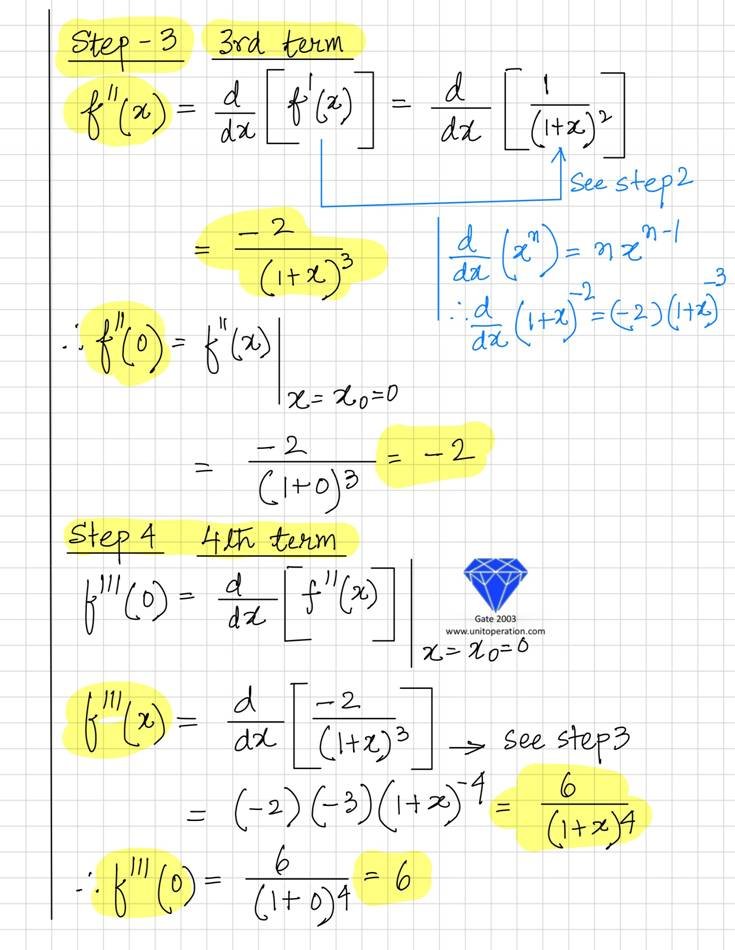 Step-3 3rd term
f''(x) = d/dx [f'(x)] = d/dx [1/(1+x)^2]
See step2
= -2/(1+x)^3
d/dx (x^n) = n x^(n-1)
∴ d/dx (1+x)^-2 = (-2)(1+x)^-3
∴ f''(0) = f''(x) | x = x₀ = 0
= -2/(1+0)^3 = -2
Step 4 4th term
f'''(0) = d/dx [f''(x)] | x = x₀ = 0
Gate 2003
www.unitoperation.com
f'''(x) = d/dx [-2/(1+x)^3] → see step3
= (-2)(-3)(1+x)^-4 = 6/(1+x)^4
∴ f'''(0) = 6/(1+0)^4 = 6